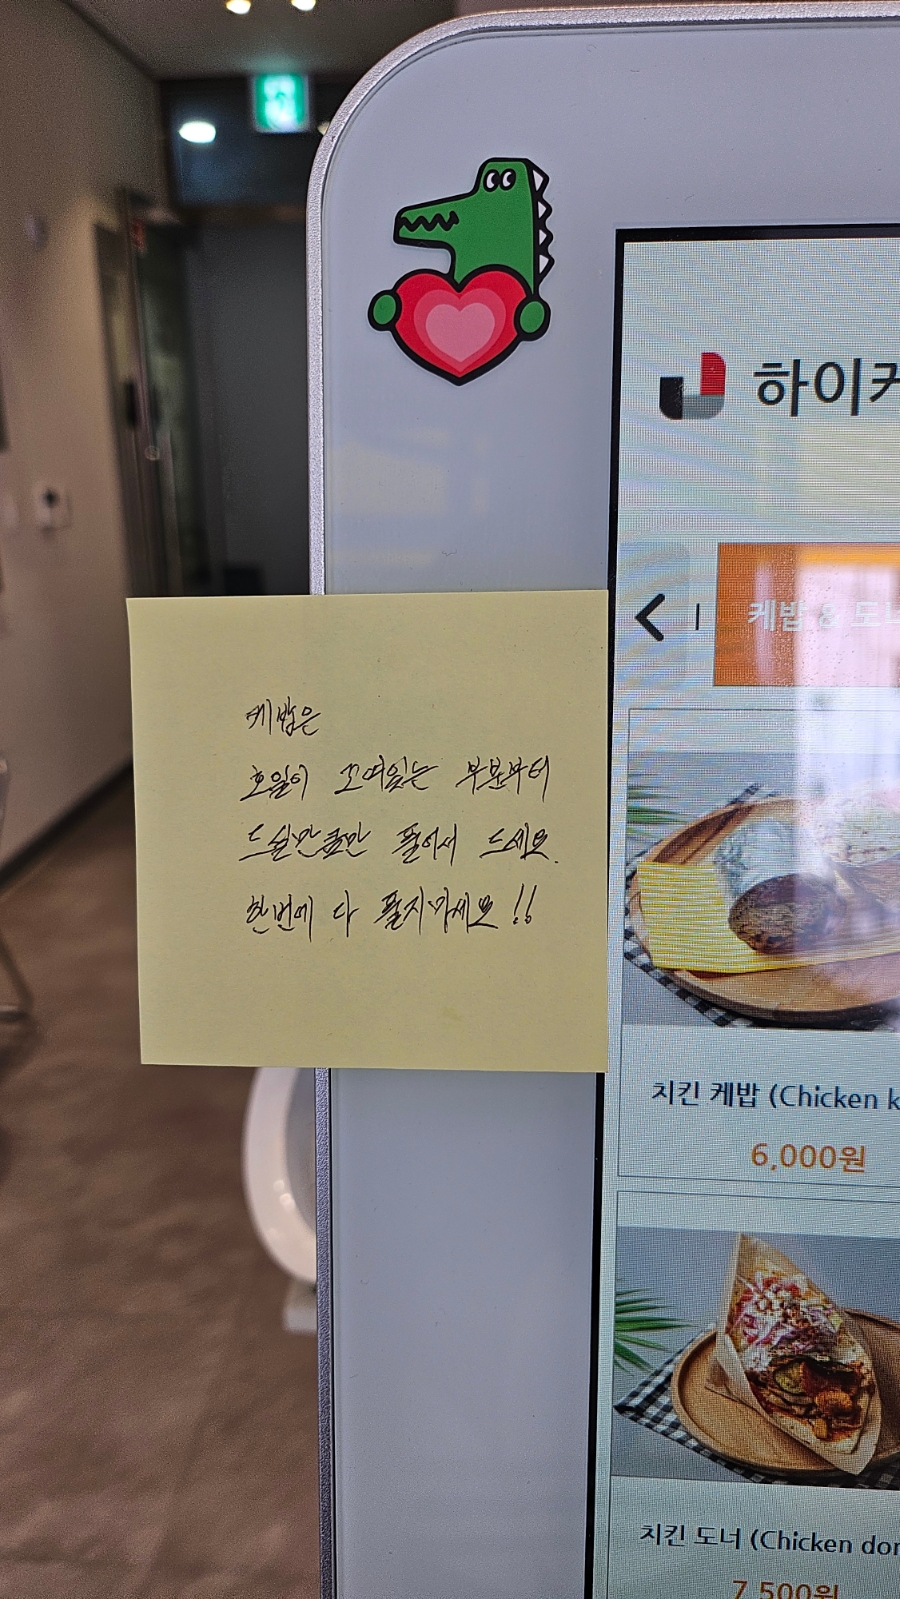 하이커
케밥 & 도너
케밥은
호일이 꼬여있는 부분부터
드실만큼만 풀어서 드세요.
한번에 다 풀지마세요!!
치킨 케밥 (Chicken k
6,000원
치킨 도너 (Chicken don
7,500원